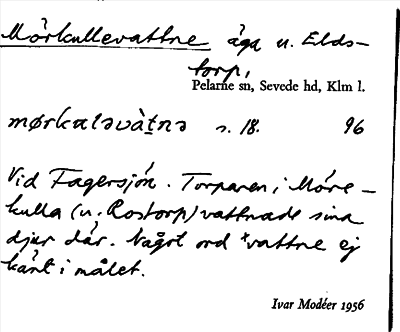 Mörkullevattne äga u. Elds-
torp,
Pelarne sn, Sevede hd, Klm l.
mørkaləvàtnə s. 18. 96
Vid Fagersjön. Torparen i Möre-
kulla (u. Rostorp) vattnade sina
djur där. Något ord *vattne ej
känt i målet.
Ivar Modéer 1956